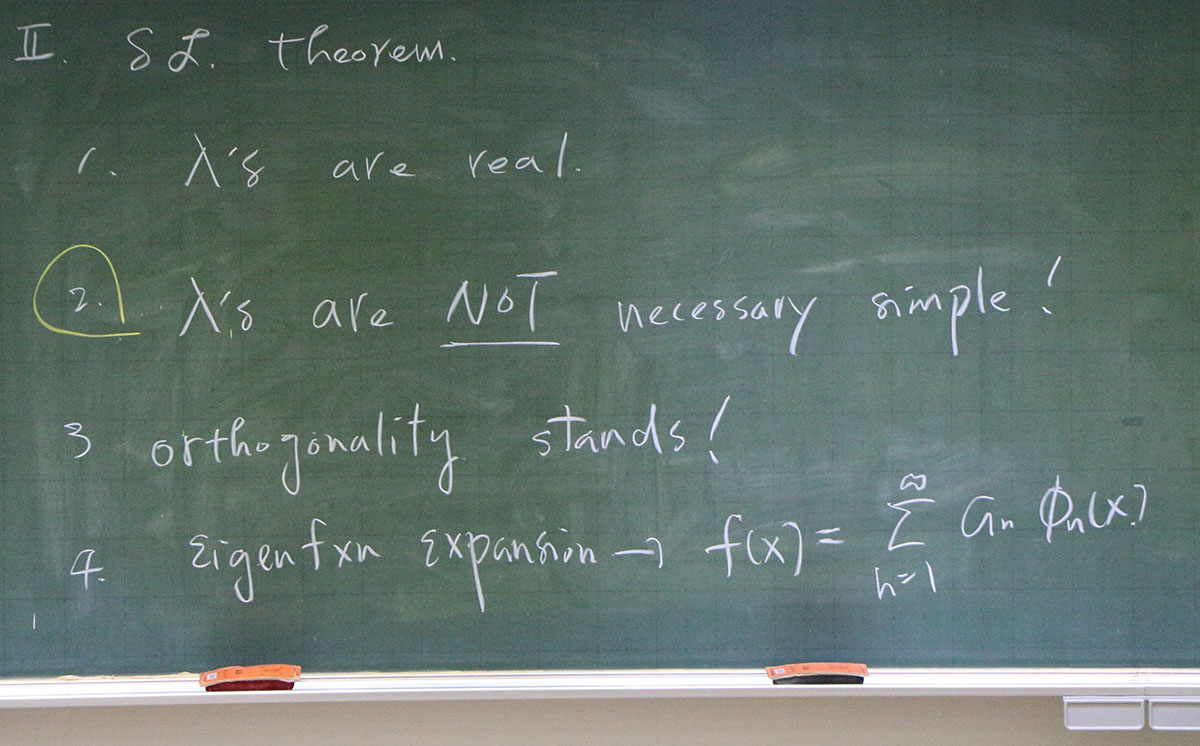 II. SL. theorem.
1. λ's are real.
2. λ's are NOT necessary simple!
3 orthogonality stands!
4. Eigenfxn Expansion → f(x) = ∑_{n=1}^{∞} a_n ϕ_n(x)